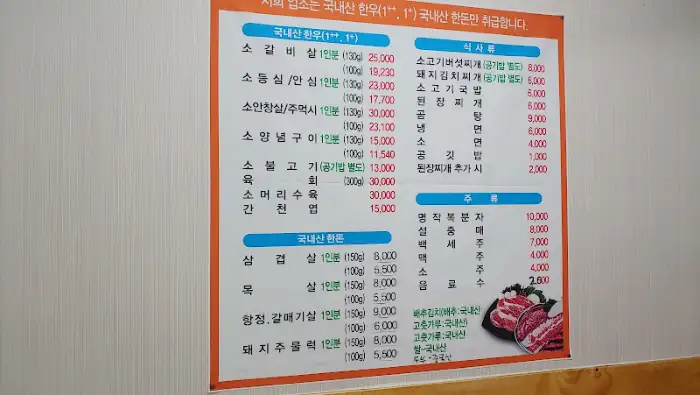 저희 업소는 국내산 한우(1++, 1+) 국내산 한돈만 취급합니다.
국내산 한우(1++, 1+)
소갈비살 1인분 (130g) 25,000
(100g) 19,230
소등심/안심 1인분 (130g) 23,000
(100g) 17,700
소안창살/주먹시 1인분 (130g) 30,000
(100g) 23,100
소양념구이 1인분 (130g) 15,000
(100g) 11,540
소불고기 (공기밥 별도) 13,000
육회 (300g) 30,000
소머리수육 30,000
간천엽 15,000
국내산 한돈
삼겹살 1인분 (150g) 8,000
(100g) 5,500
목살 1인분 (150g) 8,000
(100g) 5,500
항정.갈매기살 1인분 (150g) 9,000
(100g) 6,000
돼지주물럭 1인분 (150g) 8,000
(100g) 5,500
식사류
소고기버섯찌개 (공기밥 별도) 8,000
돼지김치찌개 (공기밥 별도) 6,000
소고기국밥 6,000
된장찌개 6,000
곰탕 9,000
냉면 6,000
소면 4,000
공깃밥 1,000
된장찌개 추가 시 2,000
주류
명작복분자 10,000
설중매 8,000
백세주 7,000
맥주 4,000
소주 4,000
음료수 2,000
배추김치(배추:국내산
고춧가루:국내산)
고춧가루:국내산
쌀-국내산
두부-중국산